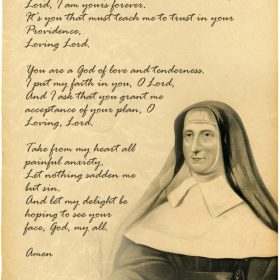 Lord, I am yours forever.
It's you that must teach me to trust in your
Providence,
Loving Lord.
You are a God of love and tenderness.
I put my faith in you, O Lord,
And I ask that you grant me
acceptance of your plan, O
Loving, Lord.
Take from my heart all
painful anxiety.
Let nothing sadden me
but sin.
And let my delight be
hoping to see your
face, God, my all.
Amen